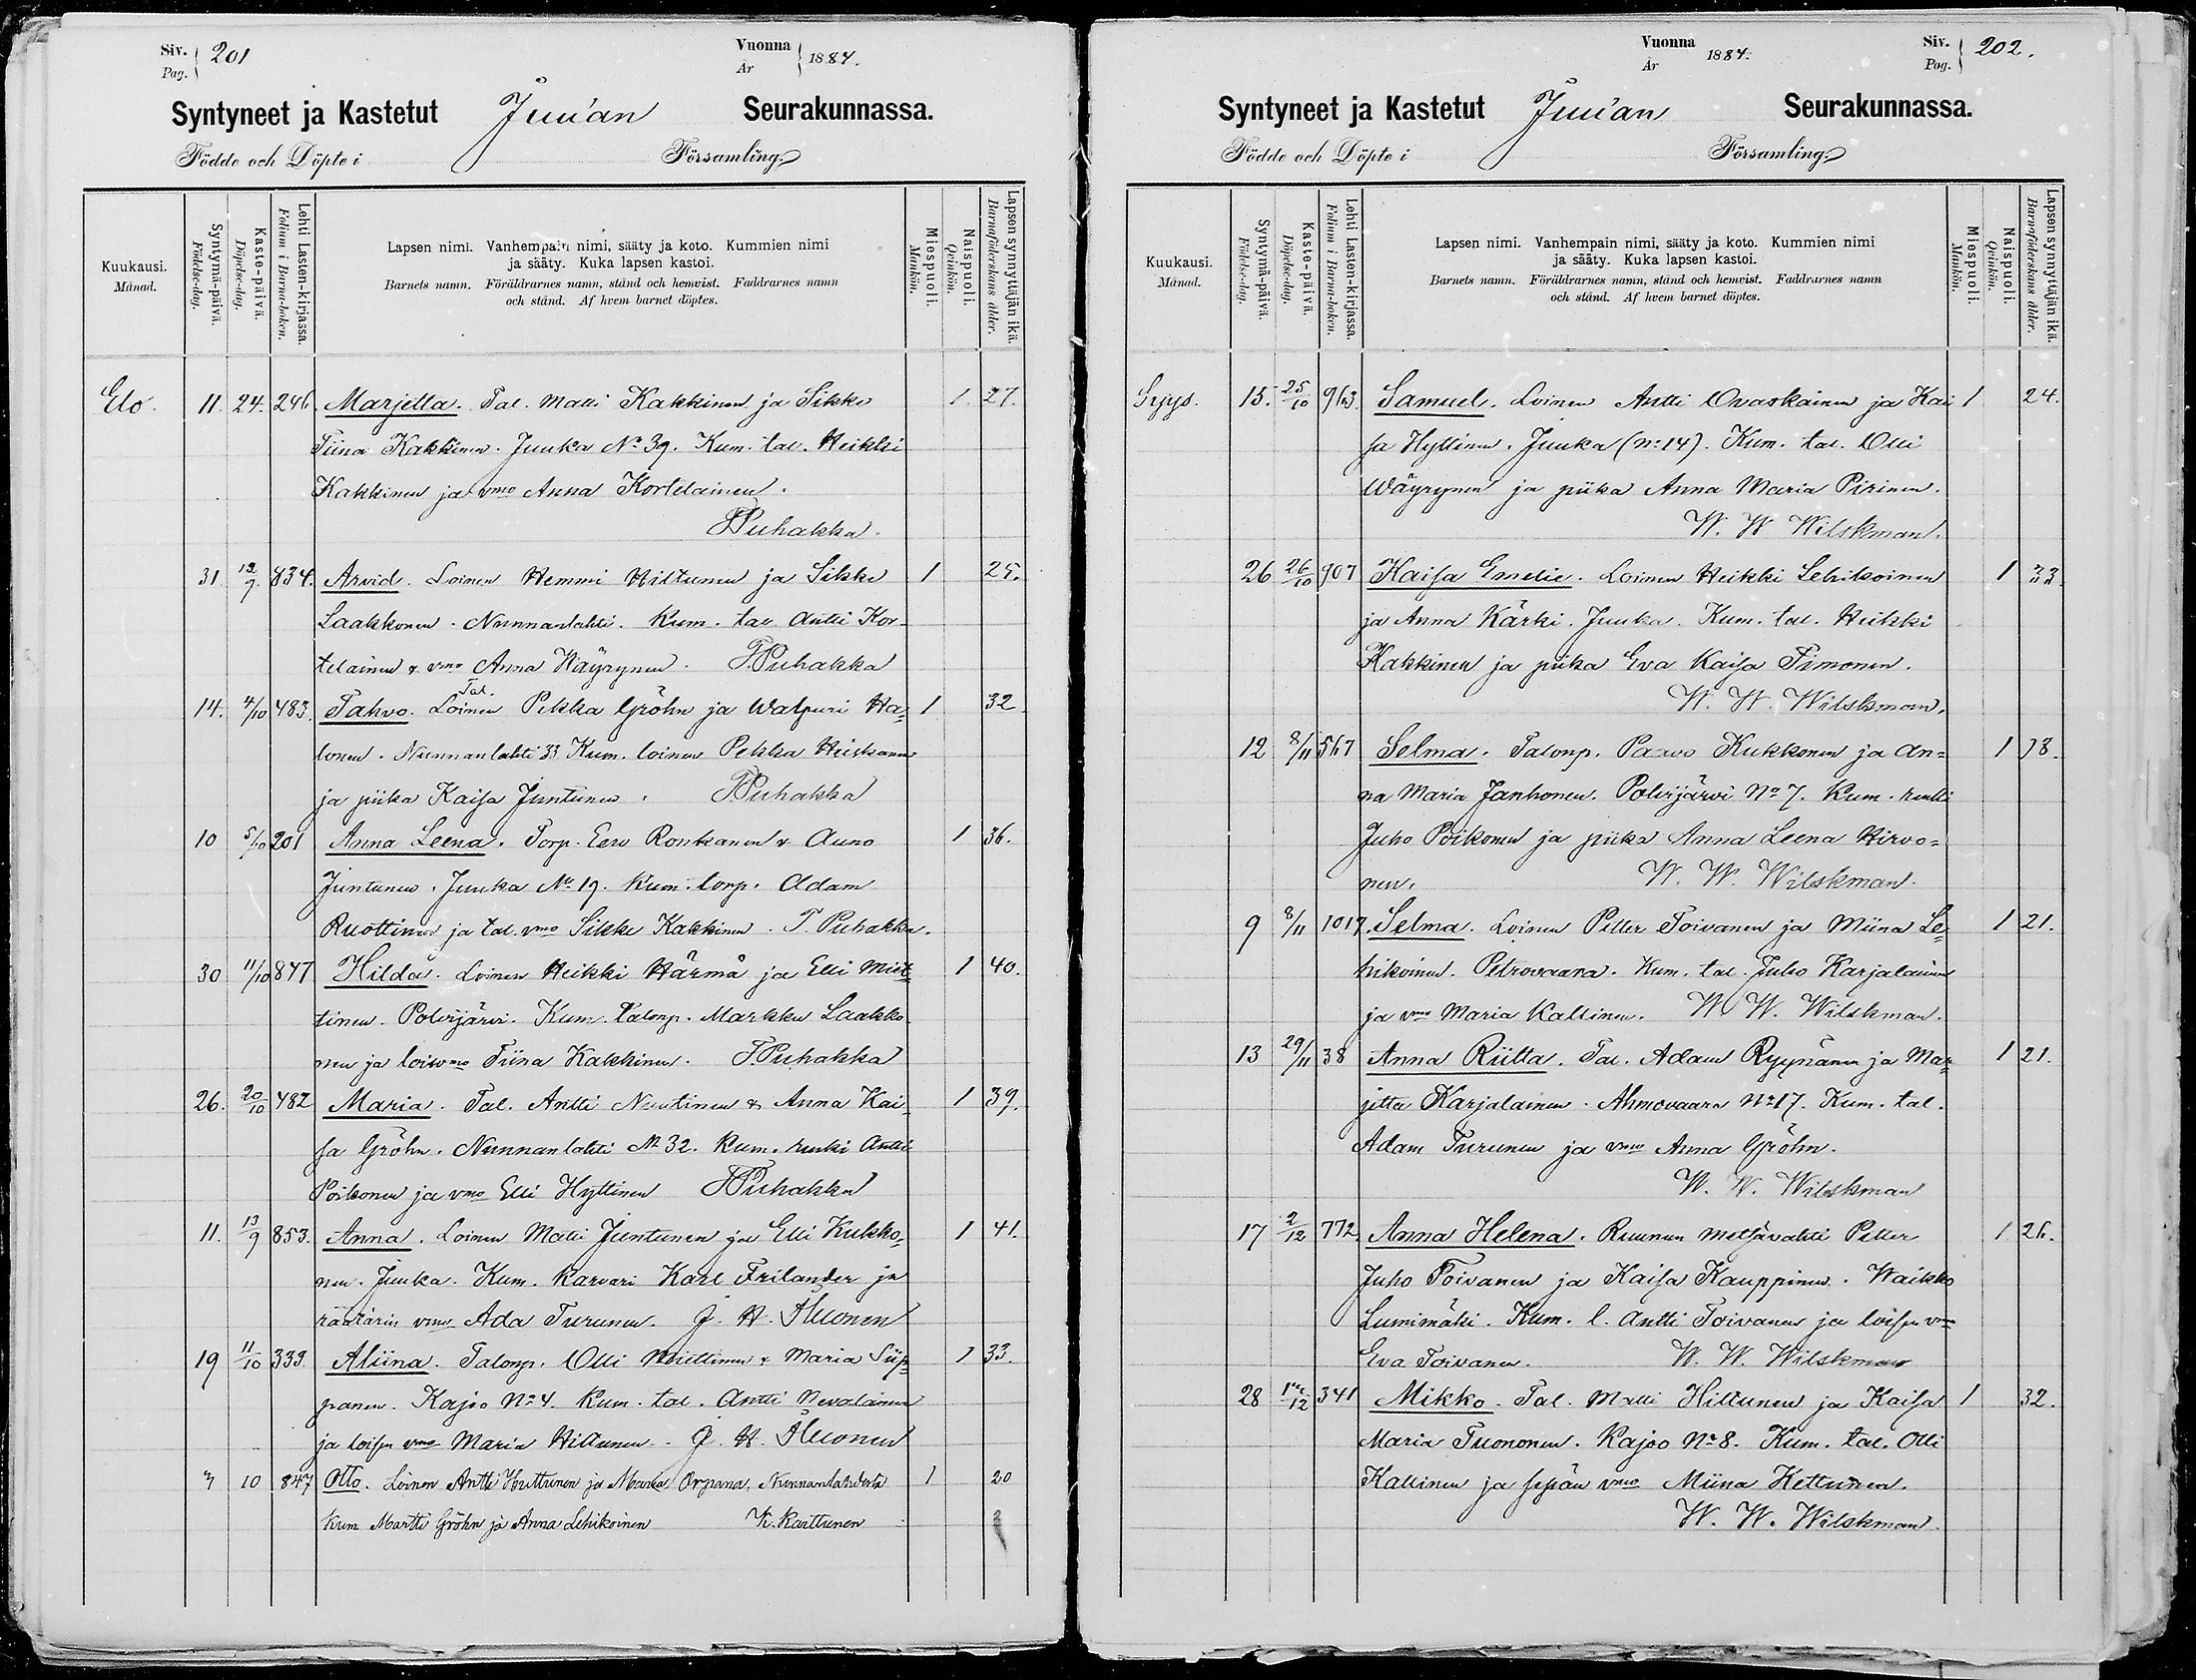 Siv. Pag. 201 Vuonna År 1884.
Syntyneet ja Kastetut Juu'an Seurakunnassa.
Födde och Döpte i Församling.
Kuukausi. Månad.
Syntymä-päivä. Födelse-dag.
Kaste-päivä. Döpelse-dag.
Lehti Lasten-kirjassa. Folium i Barna-boken.
Lapsen nimi. Vanhempain nimi, sääty ja koto. Kummien nimi
ja sääty. Kuka lapsen kastoi.
Barnets namn. Föräldrarnes namn, stånd och hemvist. Faddrarnes namn
och stånd. Af hvem barnet döptes.
Miespuoli. Mankön.
Naispuoli. Qvinkön.
Lapsen synnyttäjän ikä. Barnaföderskans ålder.
Elo. 11. 24. 246. Marjetta. Tal. Matti Kakkinen ja Sikke 1. 27.
Tiina Kakkinen. Juuka No 39. Kum. tal. Heikki
Kakkinen ja vmo Anna Kortelainen.
T Puhakka.
31. 12/9. 834. Arvid. Loinen Hemmi Hiltunen ja Sikke 1 25.
Laakkonen. Nunnanlahti. Kum. tal Antti Kor-
telainen & vmo Anna Wäyrynen. T. Puhakka
Tal.
14. 4/10 483. Tahvo. Loinen Pekka Gröhn ja Walpuri Ha- 1 32
lonen. Nunnanlahti 33 Kum. loinen Pekka Heikkanen
ja piika Kaisa Juntunen. T Puhakka
10 5/10 201 Anna Leena. Torp. Eero Ronkanen & Auno 1 36.
Juntunen. Juuka No 19. Kum. torp. Adam
Ruottinen ja tal. vmo Sikke Kakkinen. T. Puhakka.
30 11/10 847 Hilda. Loinen Heikki Härmä ja Elli Miet- 1 40.
tinen. Polvijärvi. Kum. talonp. Markku Laakko-
nen ja lois vmo Tiina Kakkinen. T. Puhakka
26. 20/10 482 Maria. Tal. Antti Nuutinen & Anna Kai- 1 39.
sa Gröhn. Nunnanlahti No 32. Kum. renki Antti
Poikonen ja vmo Elli Hyttinen T Puhakka
11. 13/9 853. Anna. Loinen Matti Juntunen ja Elli Kukko- 1 41.
nen. Juuka. Kum. Karvari Karl Frilander ja
räätärin vmo Ada Turunen. J. H. Aluonen
19 11/10 333. Aliina. Talonp. Olli Miettinen & Maria Siip- 1 33.
panen. Kajoo No 4. Kum. tal. Antti Nevalainen
ja loisen vmo Maria Hiltunen. J. H. Aluonen
7 10 847 Otto. Loinen Antti Huttunen ja Maria Orpana, Nunnanlahdesta 1 20
Kum Martti Gröhn ja Anna Lehikoinen K. Karttunen
Vuonna År 1884. Siv. Pag. 202.
Syntyneet ja Kastetut Juu'an Seurakunnassa.
Födde och Döpte i Församling.
Kuukausi. Månad.
Syntymä-päivä. Födelse-dag.
Kaste-päivä. Döpelse-dag.
Lehti Lasten-kirjassa. Folium i Barna-boken.
Lapsen nimi. Vanhempain nimi, sääty ja koto. Kummien nimi
ja sääty. Kuka lapsen kastoi.
Barnets namn. Föräldrarnes namn, stånd och hemvist. Faddrarnes namn
och stånd. Af hvem barnet döptes.
Miespuoli. Mankön.
Naispuoli. Qvinkön.
Lapsen synnyttäjän ikä. Barnaföderskans ålder.
Syys. 15. 25/10 963 Samuel. Loinen Antti Ovaskainen ja Kai 1 24.
sa Hyttinen. Juuka (No 14). Kum. tal. Olli
Wäyrynen ja piika Anna Maria Pirinen.
W. W Wilskman.
26 26/10 907 Kaisa Emelie. Loinen Heikki Lehikoinen 1 33.
ja Anna Kärki. Juuka. Kum. tal. Heikki
Kakkinen ja piika Eva Kaisa Timonen.
W. W. Wilskman.
12 8/11 567 Selma. Talonp. Paavo Kukkonen ja An= 1 38.
na Maria Janhonen. Polvijärvi No 7. Kum. renki
Juho Poikonen ja piika Anna Leena Hirvo=
nen. W. W. Wilskman.
9 8/11 1017. Selma. Loinen Petter Toivanen ja Miina Le- 1 21.
hikoinen. Petrovaara. Kum. tal. Juho Karjalainen
ja vmo Maria Kallinen. W. W. Wilskman.
13 29/11 38 Anna Riitta. Tal. Adam Ryynänen ja Mar- 1 21.
jitta Karjalainen. Ahmovaara No 17. Kum. tal.
Adam Turunen ja vmo Anna Gröhn.
W. W. Wilskman
17 2/12 772 Anna Helena. Ruunun metsävahti Petter 1 26.
Juho Toivanen ja Kaisa Kauppinen. Waikko
Lumimäki. Kum. l. Antti Toivanen ja loisen vmo
Eva Toivanen. W. W. Wilskman
28 /12 341 Mikko. Tal. Matti Hiltunen ja Kaisa 1 32.
Maria Tuononen. Kajoo No 8. Kum. tal. Olli
Kallinen ja sepän vmo Miina Kettunen.
W. W. Wilskman.